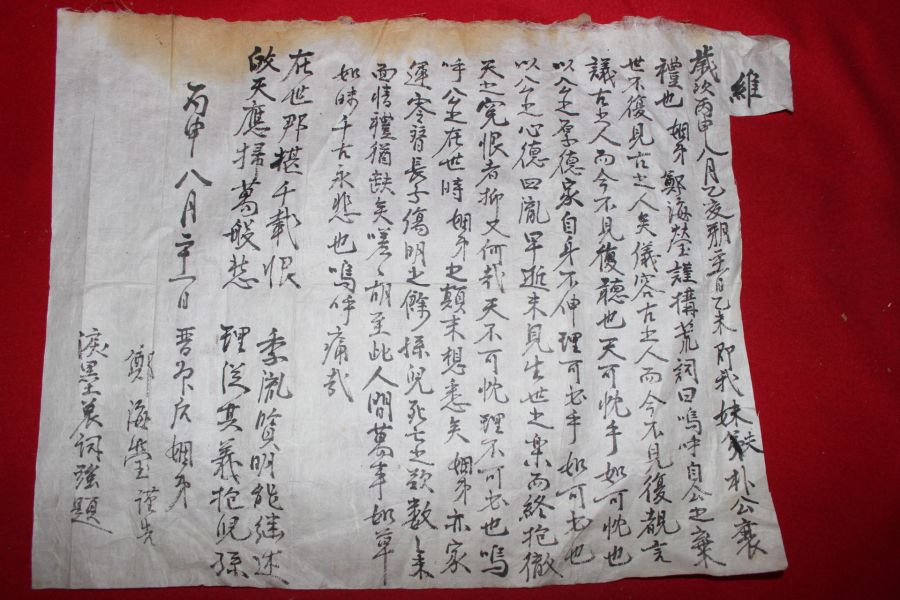 維
歲次丙申八月乙亥朔二十一日乙未即我妹兄朴公襄
禮也 姻弟鄭海瑩謹構荒詞曰嗚呼自公之棄
世不復見古之人矣儀容古之人而今不見復覩言
議古之人而今不見復聽也天可忱乎如可忱也
以公之厚德家自身不伸理可必乎如可必也
以公之心德四胤早逝未見生世之樂而終抱徹
天之寃恨者抑又何哉天不可忱理不可必也嗚
呼公之在世時姻弟之顛末想悉矣姻弟亦家
運零替長子傷明之餘孫兒死亡之欲數々來
面情禮猶缺矣嗟々胡至此人間萬事如草
如昧千古永悲也嗚呼痛哉
在世那堪千載恨 季胤賢明能継述
啟天應掃萬般愁 理從其義抱兒孫
丙申八月二十一日 晋州后姻弟
鄭海瑩謹告
淚墨荒詞強題